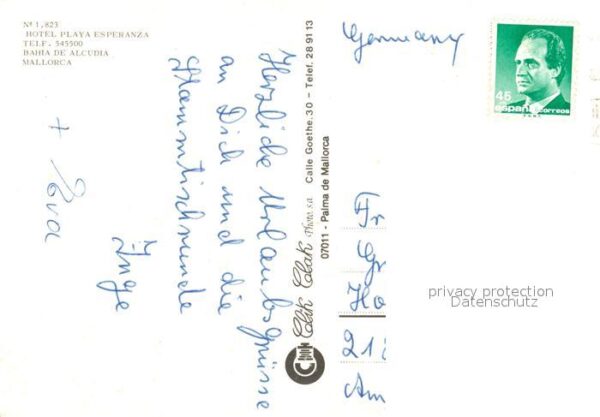 Nº 1,823
HOTEL PLAYA ESPERANZA
TELF. 545500
BAHIA DE ALCUDIA
MALLORCA
Herzliche Urlaubsgrüsse
an Dich und die
Stammtischrunde
Inge
+ Eva
Clik Clak Photo, s.a. Calle Goethe, 30 - Telef. 28 91 13
07011 - Palma de Mallorca
Germany
45
españa correos
Fr
Gr
Ho
21
Am
privacy protection
Datenschutz